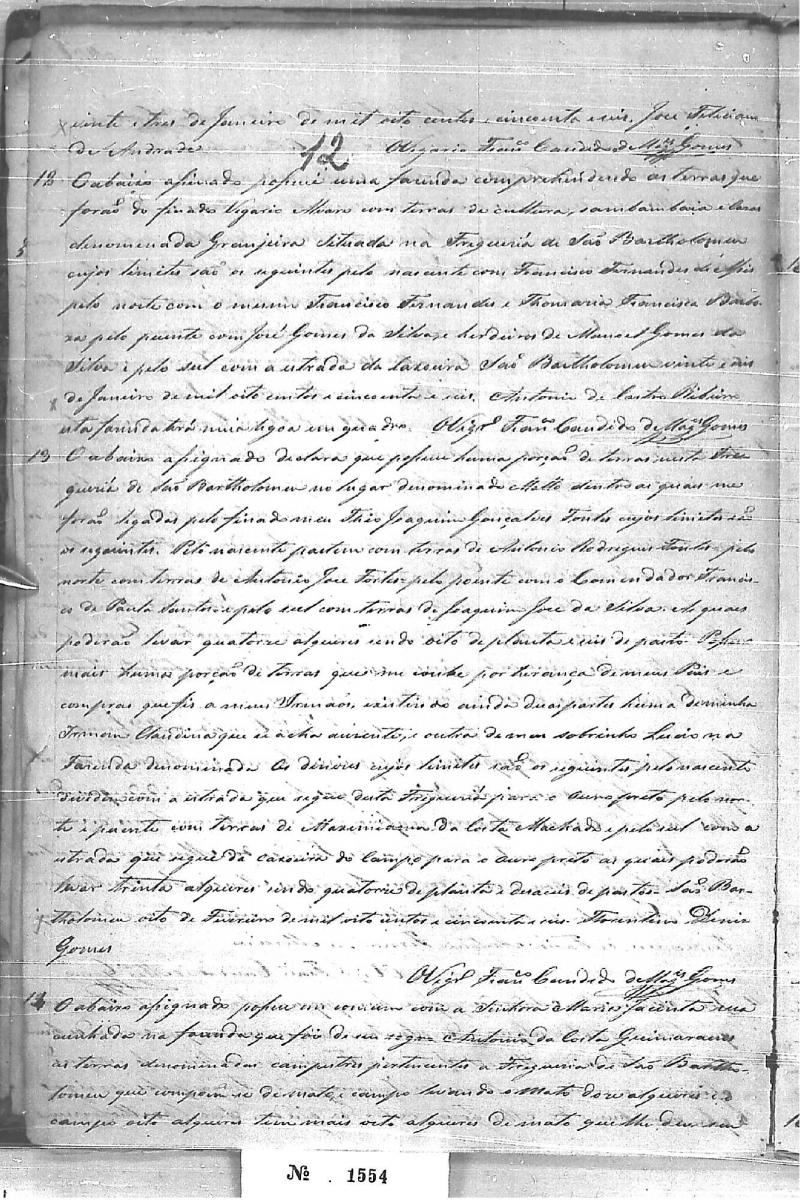 vinte e tres de Janeiro de mil oito centos e cincoenta e seis. José Feliciano
de Andrade O Vigario Franco Candido de Mages Gomes
12
12 O abaixo asignado possue uma fazenda comprehendendo as terras que
forão do finado Vigario Alvaro com terras de cultura, sambambaia e
denomenada Granjeira Situada na Fregueria de São Bartholomeu
cujos limites são os seguintes pelo nascente com Francisco Fernandes de
pelo norte com o mesmo Francisco Fernandes e Thomasia Francisca Barbo-
za pelo puente com José Gomes da Silva, e herdeiros de Manoel Gomes da
Silva e pelo sul com a estrada da Caxoeira São Bartholomeu vinte e seis
de Janeiro de mil oito centos e cincoenta e seis. Antonio de Castro Ribeiro
esta fazenda terá meia legoa em quadro. O Vigro Franco Candido de Mages Gomes
13 O abaixo assignado declara que possue huma porção de terras nesta Fre-
gueria de São Bartholomeu no lugar denominado Mello dentro as quaes me
forão legadas pelo finado meu Thio Joaquim Goncalves Fontes cujos limites são
os seguintes. Pelo nascente partem com terras de Antonio Rodrigues Fontes pelo
norte com terras de Antonio Jose Fortes pelo poente com o Comendador Francis-
co de Paula Santos e pelo sul com terras de Joaquim Jose da Silva. As quaes
poderão levar quatorze alqueires sendo oito de planta e seis de pasto. Possuo
mais huma porção de terras que me coube por herança de meus Pais e
compras que fis a meus Irmãos, existindo ainda duas partes huma de minha
Irmam Claudina que se acha auzente, e outra de meu sobrinho Lucio na
Fazenda denomenada Os cujos limites são os seguintes pelo nascente
dividem com a estrada que segue desta Fregueria para o Ouro preto pelo nor-
te e puente com terras de Maximiana da Costa Machado e pelo sul com a
estrada que segue da caxoeira do Campo para o Ouro preto as quaes poderão
levar trinta alqueires sendo quatorze de planta e desaceis de pastos. São Bar-
tholomeu oito de Fevereiro de mil oito centos e cincoenta e seis. Florentino Deniz
Gomes
O Vigro Franco Candido de Mages Gomes
14 O abaixo assignado possue em comum com a Senhora Maria Jacinta sua
cunhada na fazenda que foi de seu sogro Antonio da Costa Guimaraens
as terras denomenadas campestres pertencentes a Fregueria de São Bartho-
lomeu que compoem se de mato, e campo levando o mato doze alqueires e o
campo oito alqueres tem mais oito alqueres de mato que lhe deu seu
Nº 1554